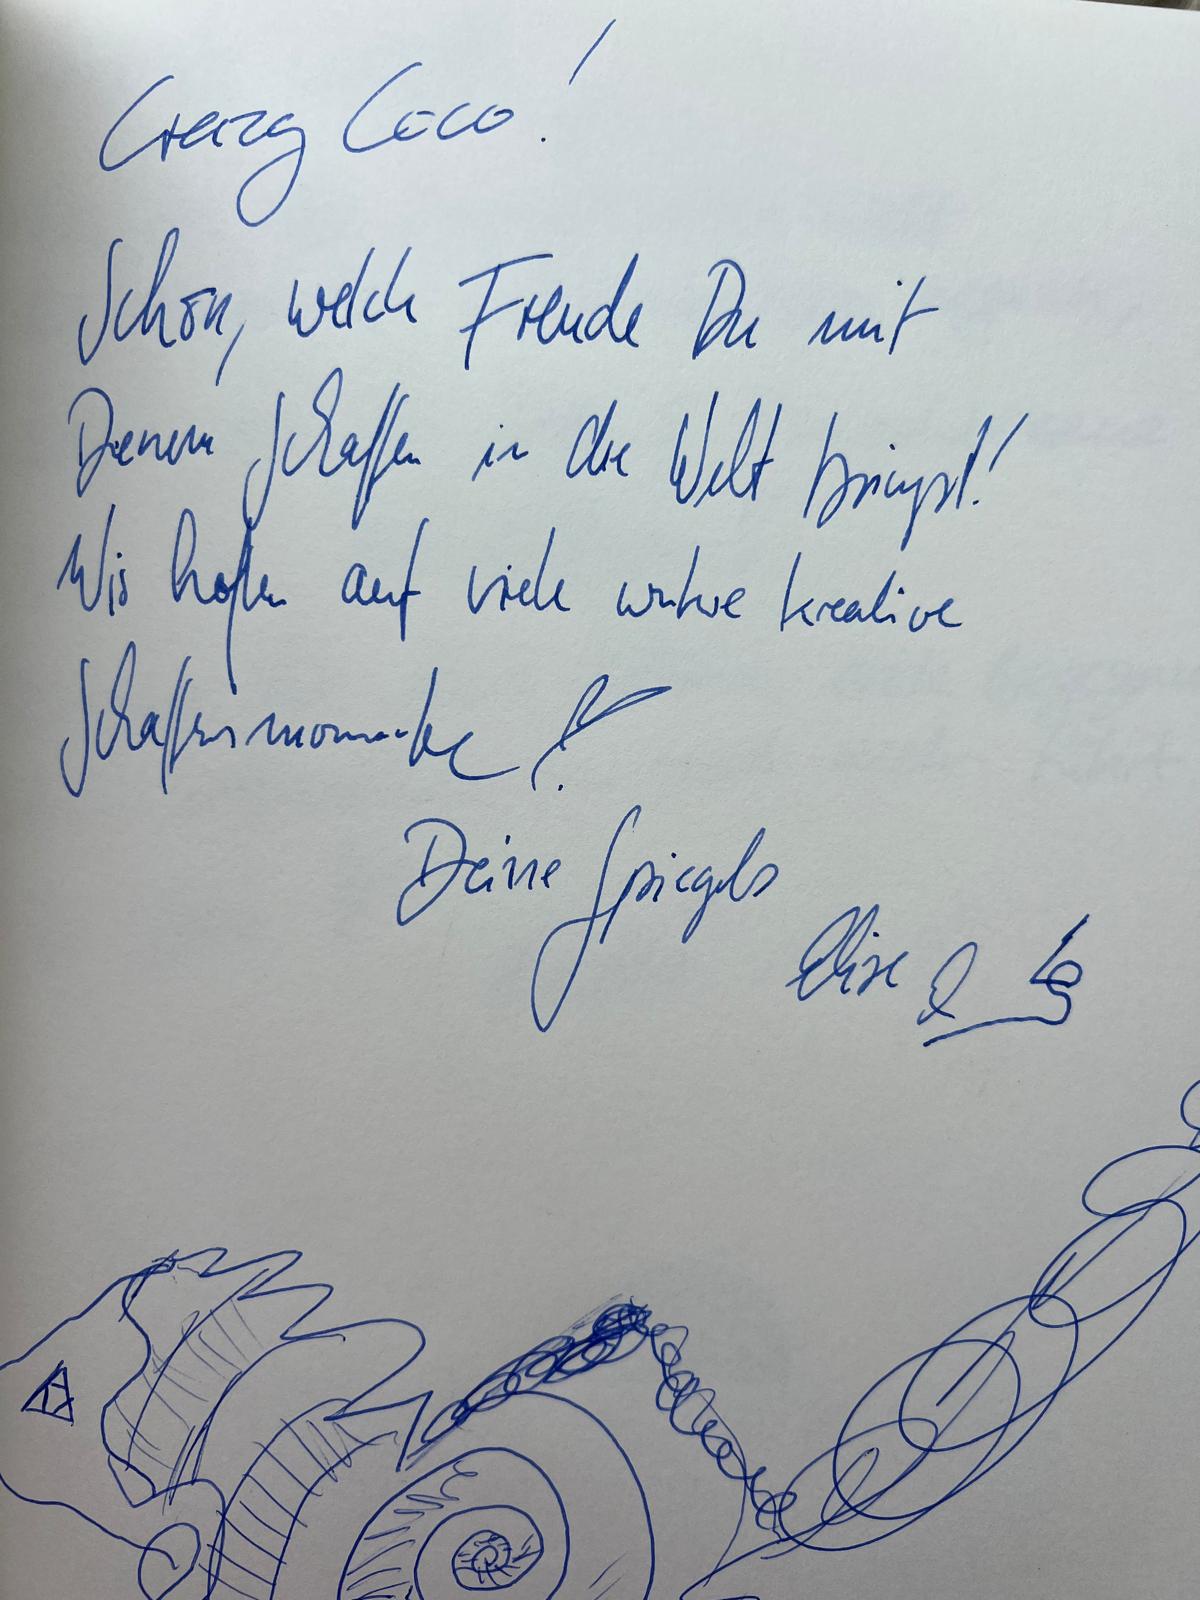 Crazy Coco!
Schön, welch Freude Du mit
Deinem Schaffen in die Welt bringst!
Wir hoffen auf viele weitere kreative
Schaffensmomente!
Deine Spiegels
Elise